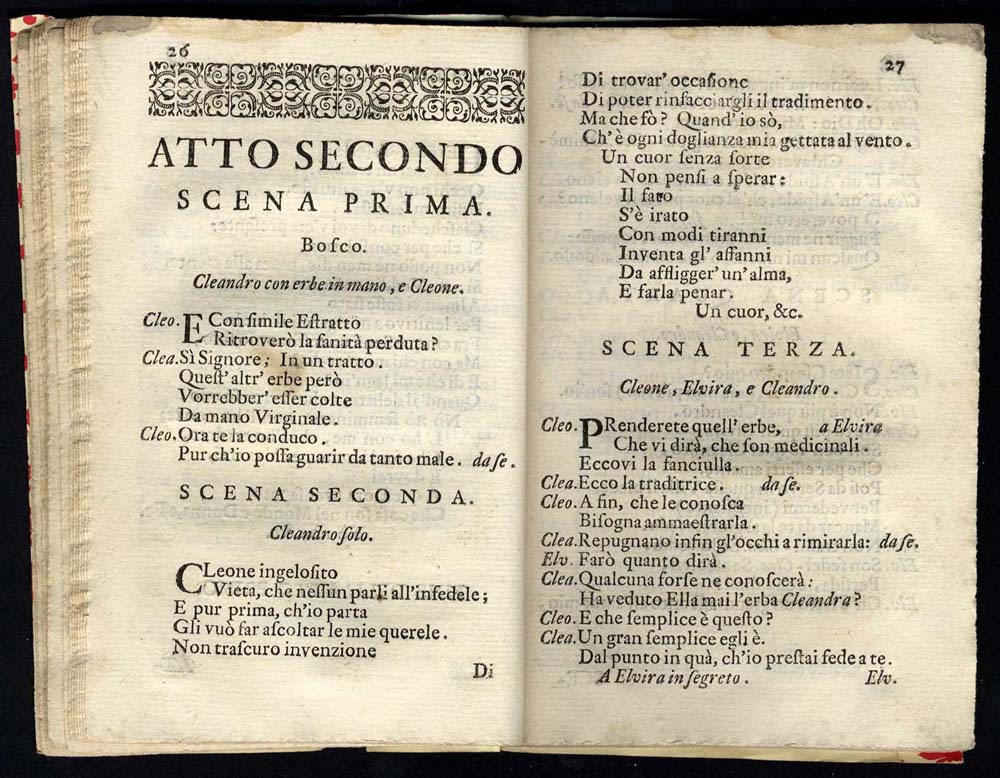 26
ATTO SECONDO
SCENA PRIMA.
Boſco.
Cleandro con erbe in mano, e Cleone.
Cleo. E Con ſimile Eſtratto
Ritroverò la ſanità perduta?
Clea. Sì Signore; In un tratto.
Queſt' altr' erbe però
Vorrebber' eſſer colte
Da mano Virginale.
Cleo. Ora te la conduco.
Pur ch'io poſſa guarir da tanto male. da ſe.
SCENA SECONDA.
Cleandro ſolo.
CLeone ingeloſito
Vieta, che neſſun parli all'infedele;
E pur prima, ch'io parta
Gli vuò far aſcoltar le mie querele.
Non traſcuro invenzione
Di
27
Di trovar' occaſione
Di poter rinfacciargli il tradimento.
Ma che fò? Quand' io sò,
Ch' è ogni doglianza mia gettata al vento.
Un cuor ſenza ſorte
Non penſi a ſperar:
Il fato
S'è irato
Con modi tiranni
Inventa gl' affanni
Da affligger' un'alma,
E farla penar.
Un cuor, &c.
SCENA TERZA.
Cleone, Elvira, e Cleandro.
Cleo. PRenderete quell' erbe, a Elvira
Che vi dirà, che ſon medicinali.
Eccovi la fanciulla.
Clea. Ecco la traditrice. da ſe.
Cleo. A fin, che le conoſca
Biſogna ammaeſtrarla.
Clea. Repugnano infin gl'occhi a rimirarla: da ſe.
Elv. Farò quanto dirà.
Clea. Qualcuna forſe ne conoſcerà:
Ha veduto Ella mai l'erba Cleandra?
Cleo. E che ſemplice è queſto?
Clea. Un gran ſemplice egli è.
Dal punto in quà, ch'io preſtai fede a te.
A Elvira in ſegreto. Elv.